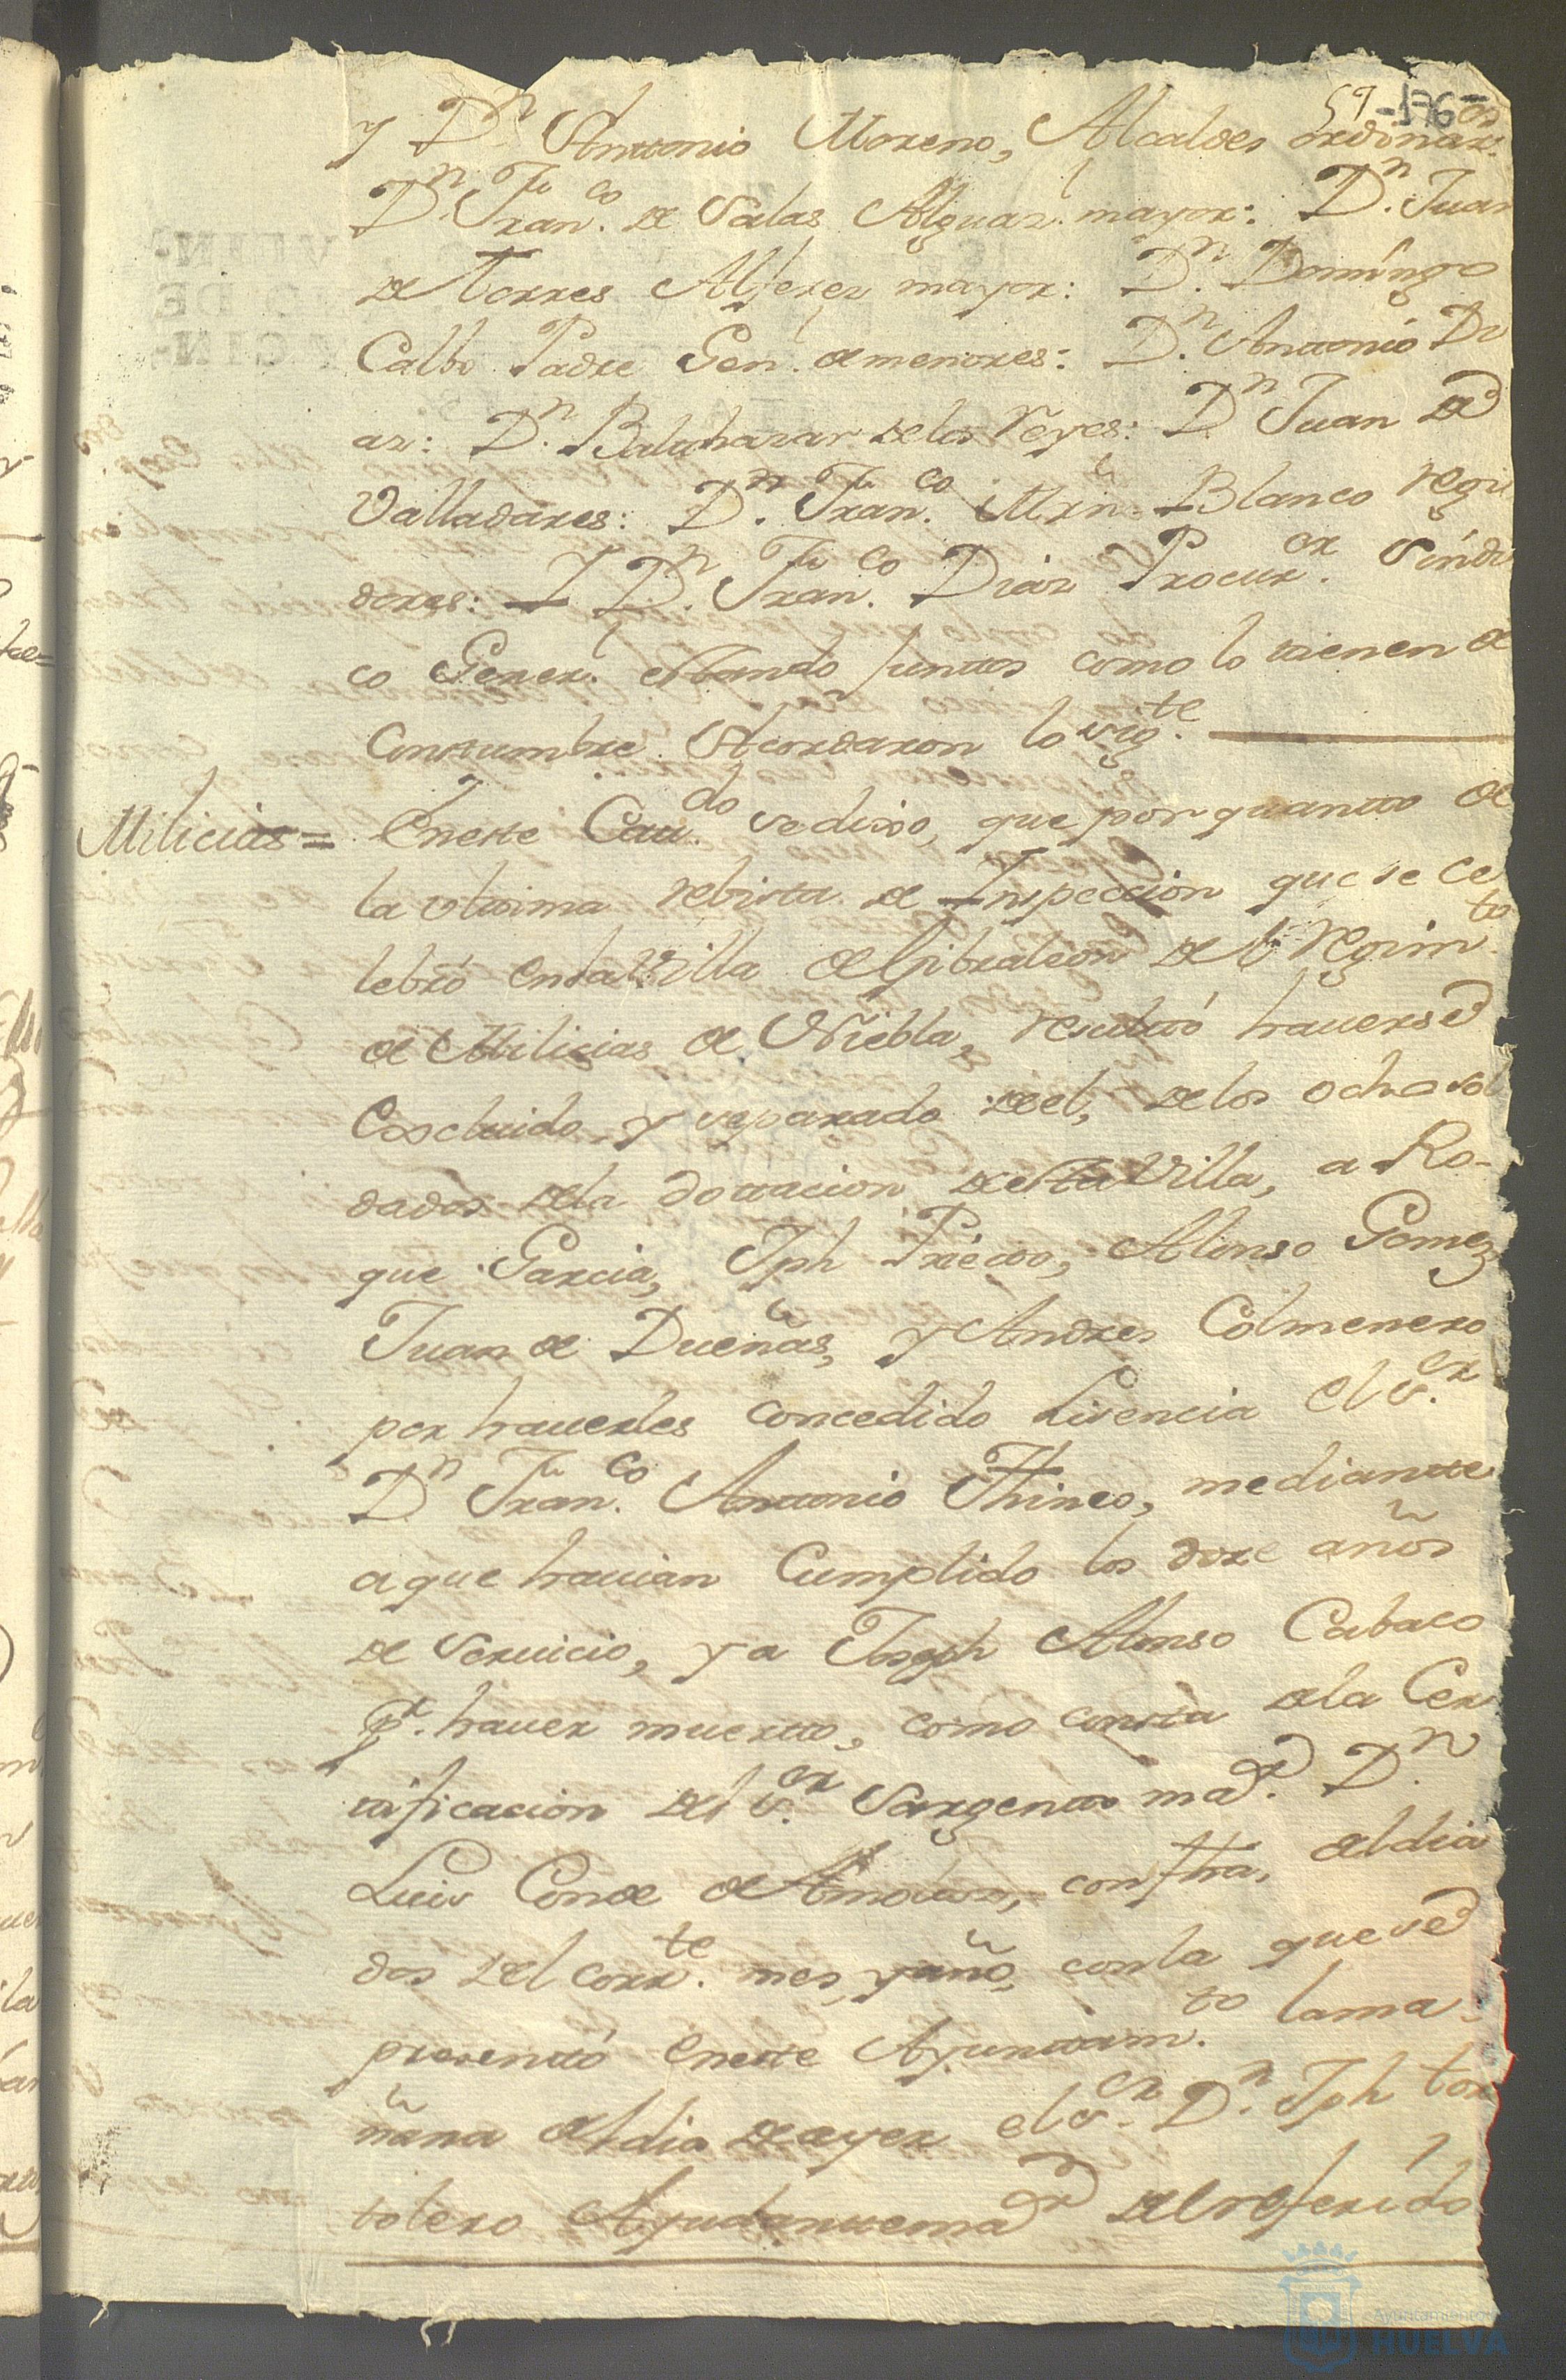 59 -176-
y Dn Antonio Moreno, Alcaldes ordinar.os
Dn. Fran.co de Salas Alguaz. mayor: Dn. Juan
de Torres Alferez mayor: Dn. Domingo
Calbo Padre Gen.l de menores: Dn. Antonio Di
az: Dn. Balthazar de los Reyes: Dn Juan de
Valladares: Dn. Fran.co Mrñ. Blanco regi
dores: Y Dn. Fran.co Diaz Procur.or Sindi
co Gener.l estando juntos como lo tienen de
Constumbre Acordaron lo sig.te
Milicias = Eneste Cau.do se dixo, que por quanto de
la vltima rebista de Inspeccion que se ce
lebró enla Villa de Gibraleon del Regim.to
de Milicias de Niebla, resultó hauerse
Excluido y separado del, delos ocho sol
dados dela dottacion desta Villa, a Ro-
que Garcia, Jph Prieto, Alonso Gomez
Juan de Dueñas, y Andres Colmenero
por hauerles concedido Lisencia el S.or
Dn Fran.co Antonio Thineo, mediante
aque hauian Cumplido los doze años
de Seruicio, y a Joseph Alonso Cabaco
p.r hauer muerto, como consta dela Cer
tificacion del S.or Sargento mar. Dn.
Luis Conde de con fha, del dia
dos del corr.te mes, y año, con la que se
presentó eneste Ayuntam.to la ma-
ñana del dia de ayer el S.or Dn. Jph tor
tolero Ayudante mar del referido
Ayuntamiento
HUELVA